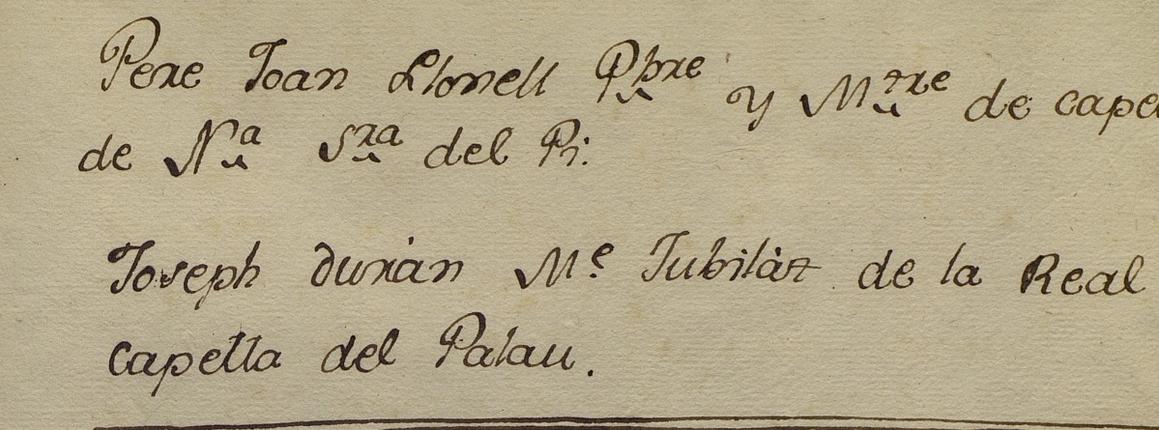 Pere Joan Llonell Pbre y Mtre de cape
de Na Sra del Pi:
Joseph duràn Me Jubilàt de la Real
Capella del Palau.